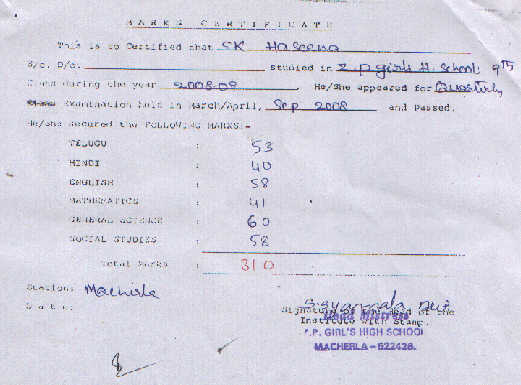 MARKS CERTIFICATE
This is to Certified that SK Haseena
S/o. D/o. studied in Z.P. girls H. School, 9th
Class during the year 2008-09 He/She appeared for Quarterly
Examination held in March/April, Sep 2008 and Passed.
He/She secured the FOLLOWING MARKS:-
TELUGU : 53
HINDI : 40
ENGLISH : 58
MATHEMATICS : 41
GENERAL SCIENCE : 60
SOCIAL STUDIES : 58
Total Marks : 310
Station: Macherla
Date:
Signature of the Head of the
Head Mistress
Institute with Stamp.
Z.P. GIRL'S HIGH SCHOOL
MACHERLA - 522426.